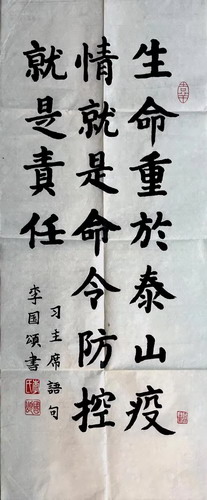 生命重於泰山疫
情就是命令防控
就是責任
习主席語句
李国頌書